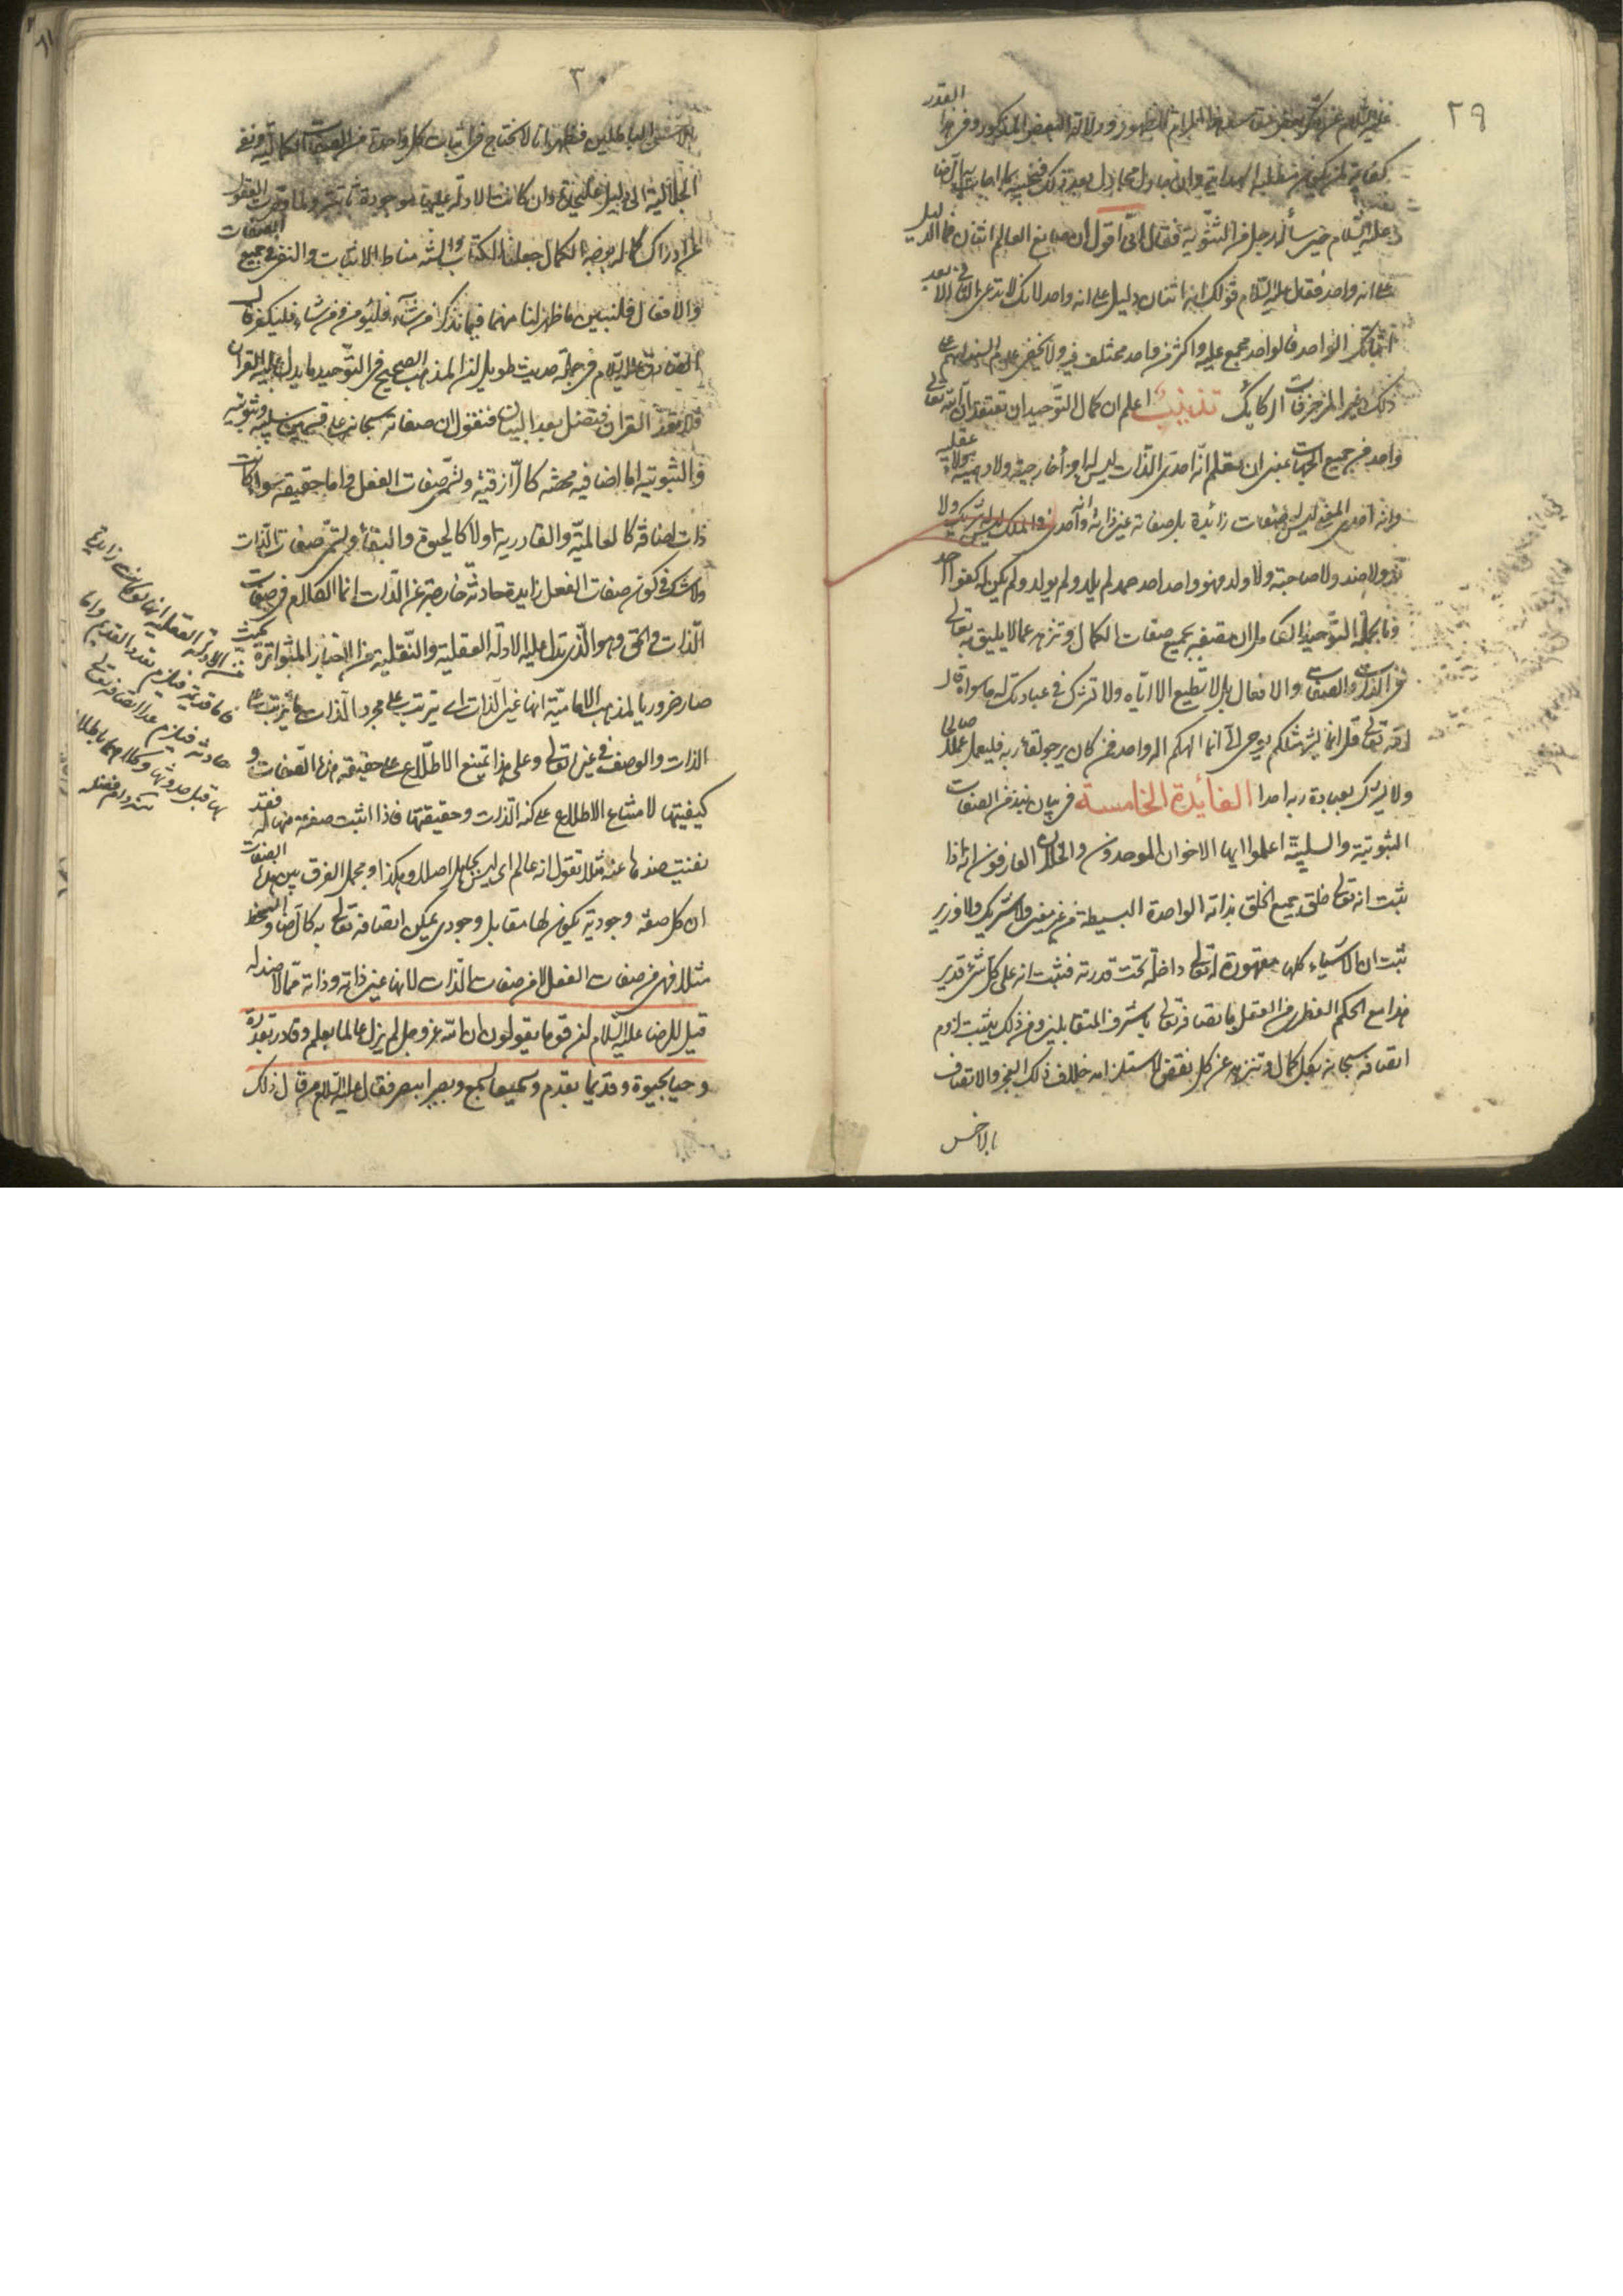 ٢٩
كفاية لمن كان من طلبة الهداية وان جادل مجادل بعد ذلك فنجيبه بما اجاب به الرضا
عليه السلام حين سأله رجل من الثنوية فقال انى اقول ان صانع العالم اثنان فما الدليل
على انه واحد فقال عليه السلام قولك انه اثنان دليل على انه واحد لانك لا تدعى الثانى الا بعد
اثباتك الواحد فالواحد مجمع عليه واكثر من واحد مختلف فيه ولا يخفى
ذلك من المزخرفات الركايك تذنيب اعلم ان كمال التوحيد ان تعتقد ان الله تعالى
واحد من جميع الجهات بمعنى ان تعلم انه احدى الذات ليس له اجزاء خارجية ولا وهمية ولا عقلية
وانه احدى المعنى ليس له صفات زائدة بل صفاته عين ذاته وانه احدى الملك ليس له شريك ولا
ند ولا ضد ولا صاحبة ولا ولد فهو واحد احد صمد لم يلد ولم يولد ولم يكن له كفوا احد
وبالجملة التوحيد الكامل ان تصفه بجميع صفات الكمال وتنزهه عما لا يليق به تعالى
فى الذات والصفات والافعال بل لا تطيع الا اياه ولا تشرك فى عبادتك له ما سواه قال
الله تعالى قل انما انا بشر مثلكم يوحى الى انما الهكم اله واحد فمن كان يرجو لقاء ربه فليعمل عملا صالحا
ولا يشرك بعبادة ربه احدا الفائدة الخامسة فى بيان نبذ من الصفات
الثبوتية والسلبية اعلموا ايها الاخوان الموحدون والخلان العارفون انه اذا
ثبت انه تعالى خلق جميع الخلق بذاته الواحدة البسيطة من غير معين ولا شريك ولا وزير
ثبت ان الاشياء كلها مقهورة له تعالى داخلة تحت قدرته فثبت انه على كل شئ قدير
هذا مع الحكم الفطرى من العقل باتصافه تعالى باشرف المتقابلين ومن ذلك يثبت لزوم
اتصافه سبحانه بكل كمال وتنزيهه عن كل نقص لاستلزامه خلاف ذلك العجز والاتصاف
بالاخس
٣٠
الباطلين فظهر انا لا نحتاج فى اثبات كل واحدة من الصفات الكمالية ونفى
الجلالية الى دليل عليحدة وان كانت الادلة عليها موجودة ثابتة ولما قصرت العقول
عن ادراك كلما يوجب الكمال جعلنا الكتاب والسنة مناط الاثبات والنفى فى جميع الصفات
والافعال فلنبين ما ظهر لنا منهما فيما نذكر فمن شاء فليؤمن ومن شاء فليكفر قال
الصادق عليه السلام فى جملة حديث طويل ان المذهب الصحيح فى التوحيد ما يدل عليه القرآن
فلا تعد القرآن فتضل بعد البيان فنقول ان صفاته سبحانه على قسمين سلبية وثبوتية
والثبوتية اما اضافية محضة كالرازقية وتسمى صفات الفعل واما حقيقة سواء كانت
ذات اضافة كالعالمية والقادرية او لا كالحيوة والبقاء وتسمى صفات الذات
ولا شك فى كون صفات الفعل زايدة حادثة خارجة عن الذات انما الكلام فى صفات
الذات والحق وهو الذى تدل عليه الادلة العقلية والنقلية من الاخبار المتواترة بحيث
صار ضروريا لمذهب الامامية انها عين الذات اى يترتب على مجرد الذات ما يترتب على
الذات والوصف فى غيره تعالى وعلى هذا يمتنع الاطلاع على حقيقة هذه الصفات و
كيفيتها لامتناع الاطلاع على كنه الذات وحقيقتها فاذا اثبت صفة منها له فقد
نفيت ضدها عنه مثلا تقول انه عالم اى ليس بجاهل اصلا وهكذا ومجمل الفرق بين هذه الصفات
ان كل صفة وجودية يكون لها مقابل وجودى يمكن اتصافه تعالى به كالرضا والسخط
مثلا فهى من صفات الفعل لا من صفات الذات لانها عين ذاته وذاته مما لا ضد له
قيل للرضا عليه السلام ان قوما يقولون ان الله عز وجل لم يزل عالما بعلم وقادرا بقدرة
وحيا بحيوة وقديما بقدم وسميعا بسمع وبصيرا ببصر فقال عليه السلام من قال ذلك
من الادلة العقلية انها لو كانت زايدة
فاما قديمة فيلزم تعدد القدماء واما
حادثة فيلزم عدم اتصافه تعالى
بها قبل حدوثها وكلاهما باطلان